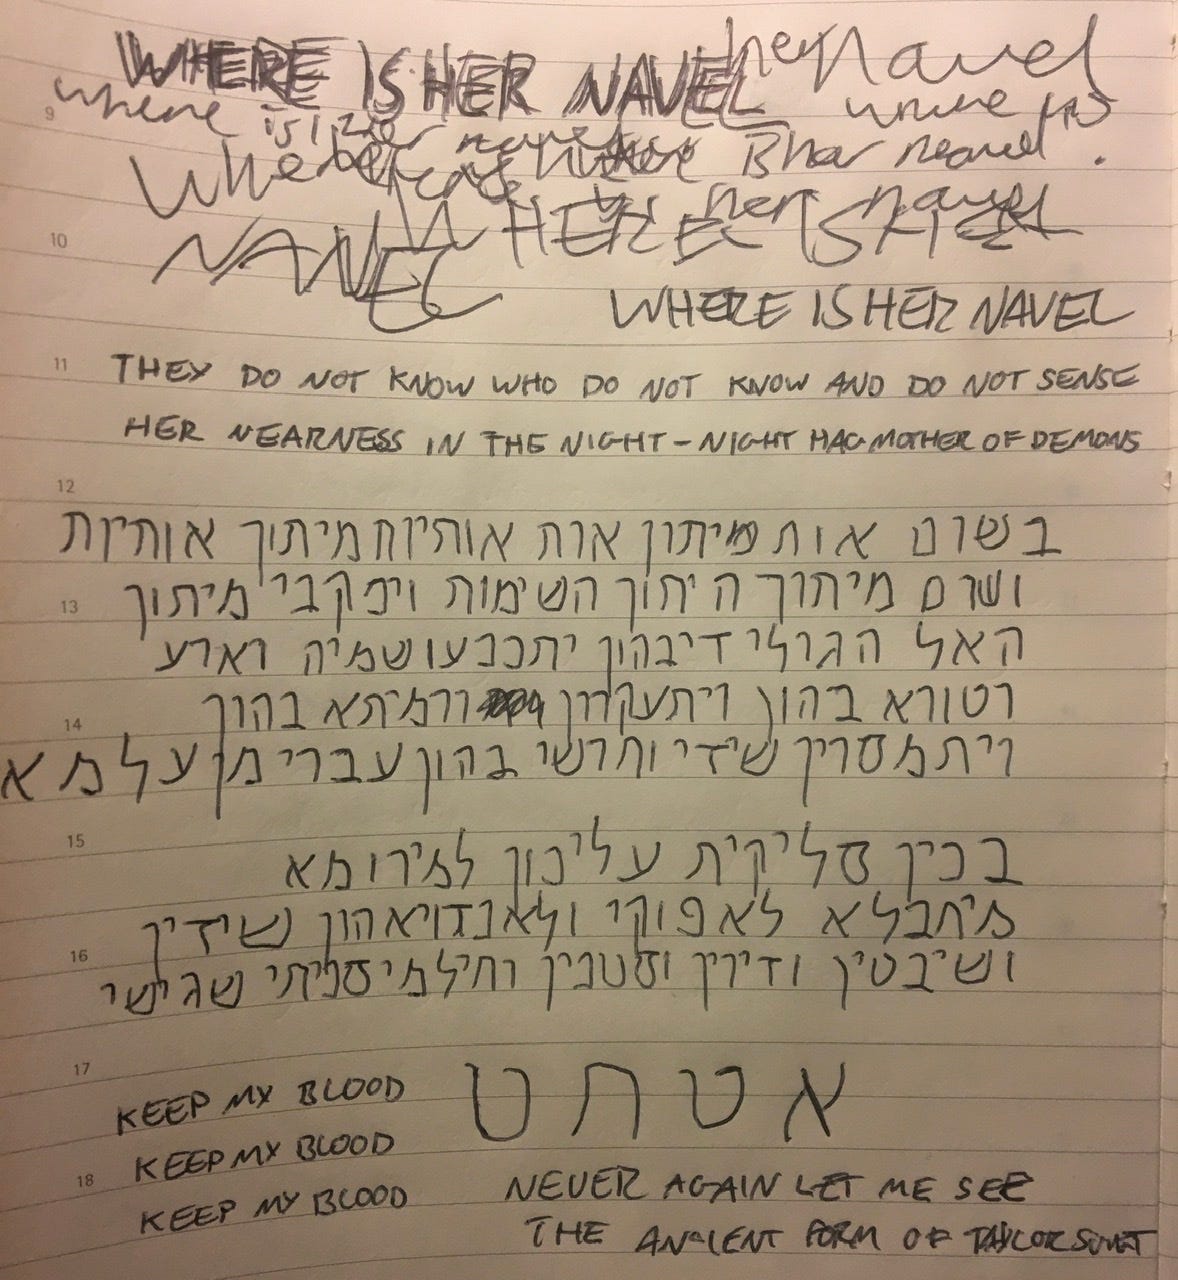 WHERE IS HER NAVEL her Navel
9
where is her navel where is
where is her navel.
her navel
10
NAVEL WHERE IS HER
WHERE IS HER NAVEL
11
THEY DO NOT KNOW WHO DO NOT KNOW AND DO NOT SENSE
HER NEARNESS IN THE NIGHT - NIGHT HAG MOTHER OF DEMONS
12
בשום אות מיתון אות אותיות מיתוך אותיות
13
ושם מיתוך היתוך השימות וימקבי מיתוך
האל הגולי דיבהון יתכבעו שמיה וארע
14
וטורא בהון ויתעקרון ורמיתא בהון
ויתמסרין שידי וחרשי בהון עברי מן עלמא
15
בכין סליקית עליכון למירומא
מיחבלא לאפוקי ולאנדויאהון שידין
16
ושיבטין ודיוין וסטנין וחילמי סניתי שגישי
17
KEEP MY BLOOD
אטחט
KEEP MY BLOOD
18
KEEP MY BLOOD
NEVER AGAIN LET ME SEE
THE ANCIENT FORM OF TAYLOR SWIFT